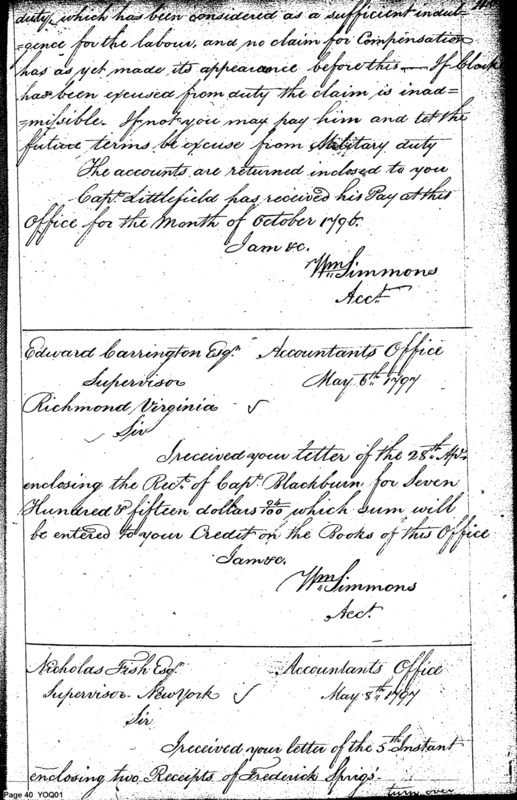 duty, which has been considered as a sufficient indul-
=gence for the labour, and no claim for Compensation
has as yet made its appearance before this — If Clark
has been excused from duty the claim is inad-
=missible. If not you may pay him and let the
future terms be excuse from Military duty
The accounts are returned inclosed to you
Capt. Littlefield has received his Pay at this
Office for the Month of October 1796.
I am &c.
Wm Simmons
Acct.
Edward Carrington Esqr. Accountants Office
Supervisor May 6th 1797
Richmond Virginia
Sir
I received your letter of the 28th Apl.
enclosing the Rect. of Capt. Blackburn for Seven
Hundred & fifteen dollars 24/100 which sum will
be entered to your Credit on the Books of this Office
I am &c.
Wm Simmons
Acct.
Nicholas Fish Esqr. Accountants Office
Supervisor New York May 8th 1797
Sir
I received your letter of the 5th Instant
enclosing two Receipts of Frederick Sprigs
turn over
Page 40 YOQ01